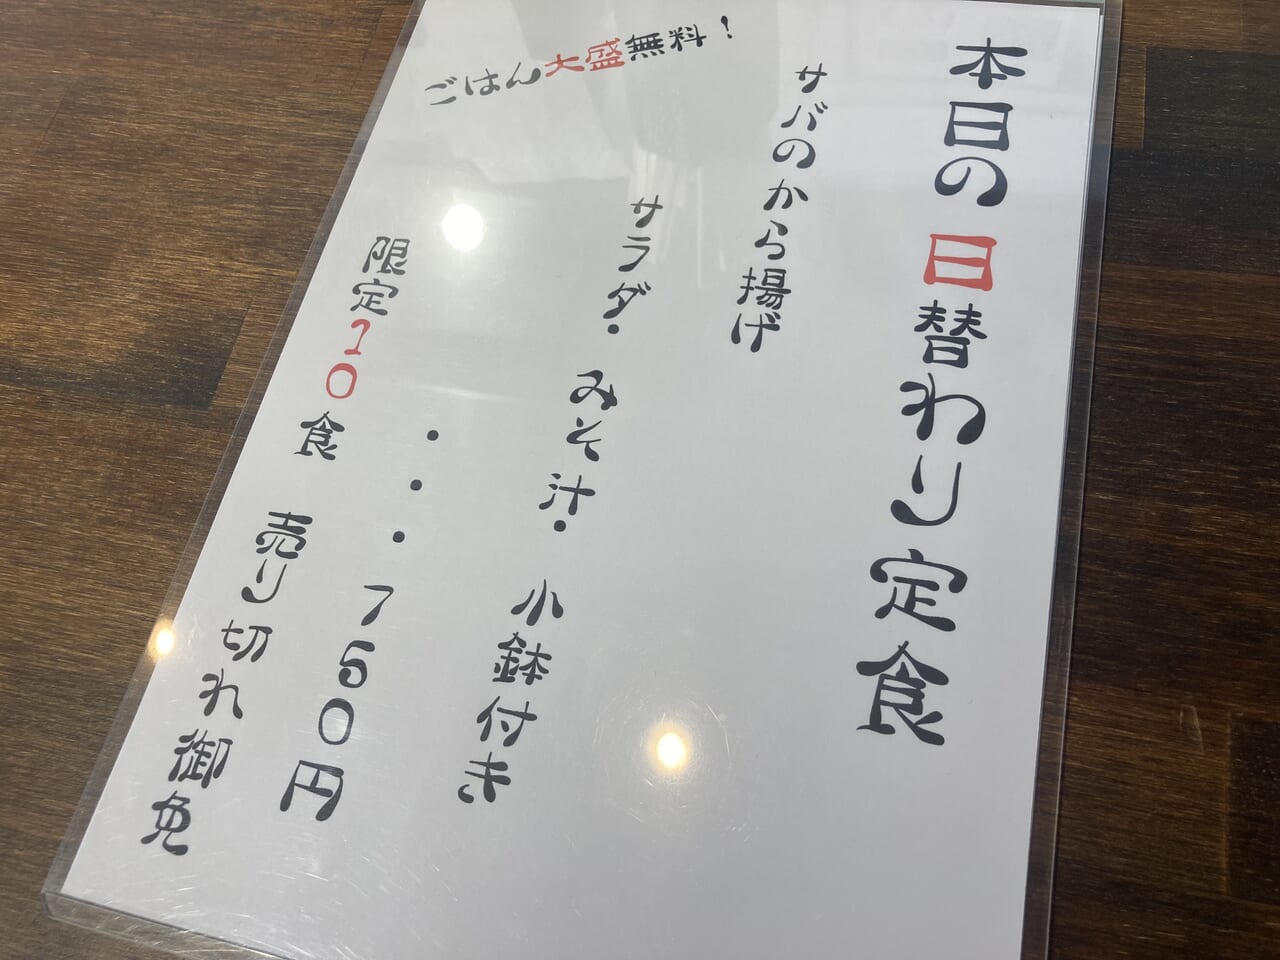 本日の日替わり定食
サバのから揚げ
サラダ・みそ汁・小鉢付き
・・・750円
限定10食 売り切れ御免
ごはん大盛無料！